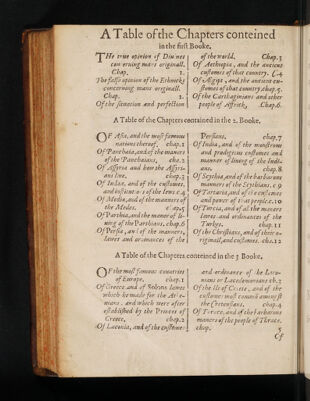 A Table of the Chapters conteined
in the first Booke.
THe true opinion of Diuines
concerning mans originall.
Chap. 1.
The false opinion of the Ethnicks
concerning mans originall.
Chap. 2.
Of the scituation and perfection
of the world. Chap.3
Of Aethiopia, and the ancient
customes of that country. C.4
Of Aegipt, and the ancient cu-
stomes of that country. chap.5
Of the Carthaginians and other
people of Affrick, Chap.6.
A Table of the Chapters conteined in the 2. Booke.
OF Asia, and the most famous
nations thereof. chap.1
Of Panchaia, and of the maners
of the Panchaians, cha.2
Of Assyria and how the Assyri-
ans liue. chap.3
Of Iudaea, and of the customes,
and institutions of the Iewes c.4
Of Media, and of the manners of
the Medes. cap.5
Of Parthia, and the maner of li-
uing of the Parthians. chap.6
Of Persia, and of the manners,
lawes and ordinances of the
Persians. chap.7
Of India, and of the monstrous
and prodigious customes and
manner of liuing of the Indi-
ans. chap.8
Of Scythia, and of the barbarous
manners of the Scythians. c.9
Of Tartaria, and of the customes
and power of that people. c.10
Of Turcia, and of all the maners
lawes and ordinances of the
Turkes. chap.11
Of the Christians, and of their o-
riginall, and customs. cha.12
A Table of the Chapters conteined in the 3 Booke.
OF the most famous countries
of Europe. chap.1
Of Greece and of Solons lawes
which he made for the Athe-
nians, and which were after
established by the Princes of
Greece, chap.2
Of Laconia, and of the customes
and ordinance of the Laco-
nians or Lacedemonians ch.3
Of the Ile of Creete, and of the
customes most common amongst
the Cretensians. chap.4
Of Thrace, and of the barbarous
maners of the people of Thrace,
chap. 5
Of